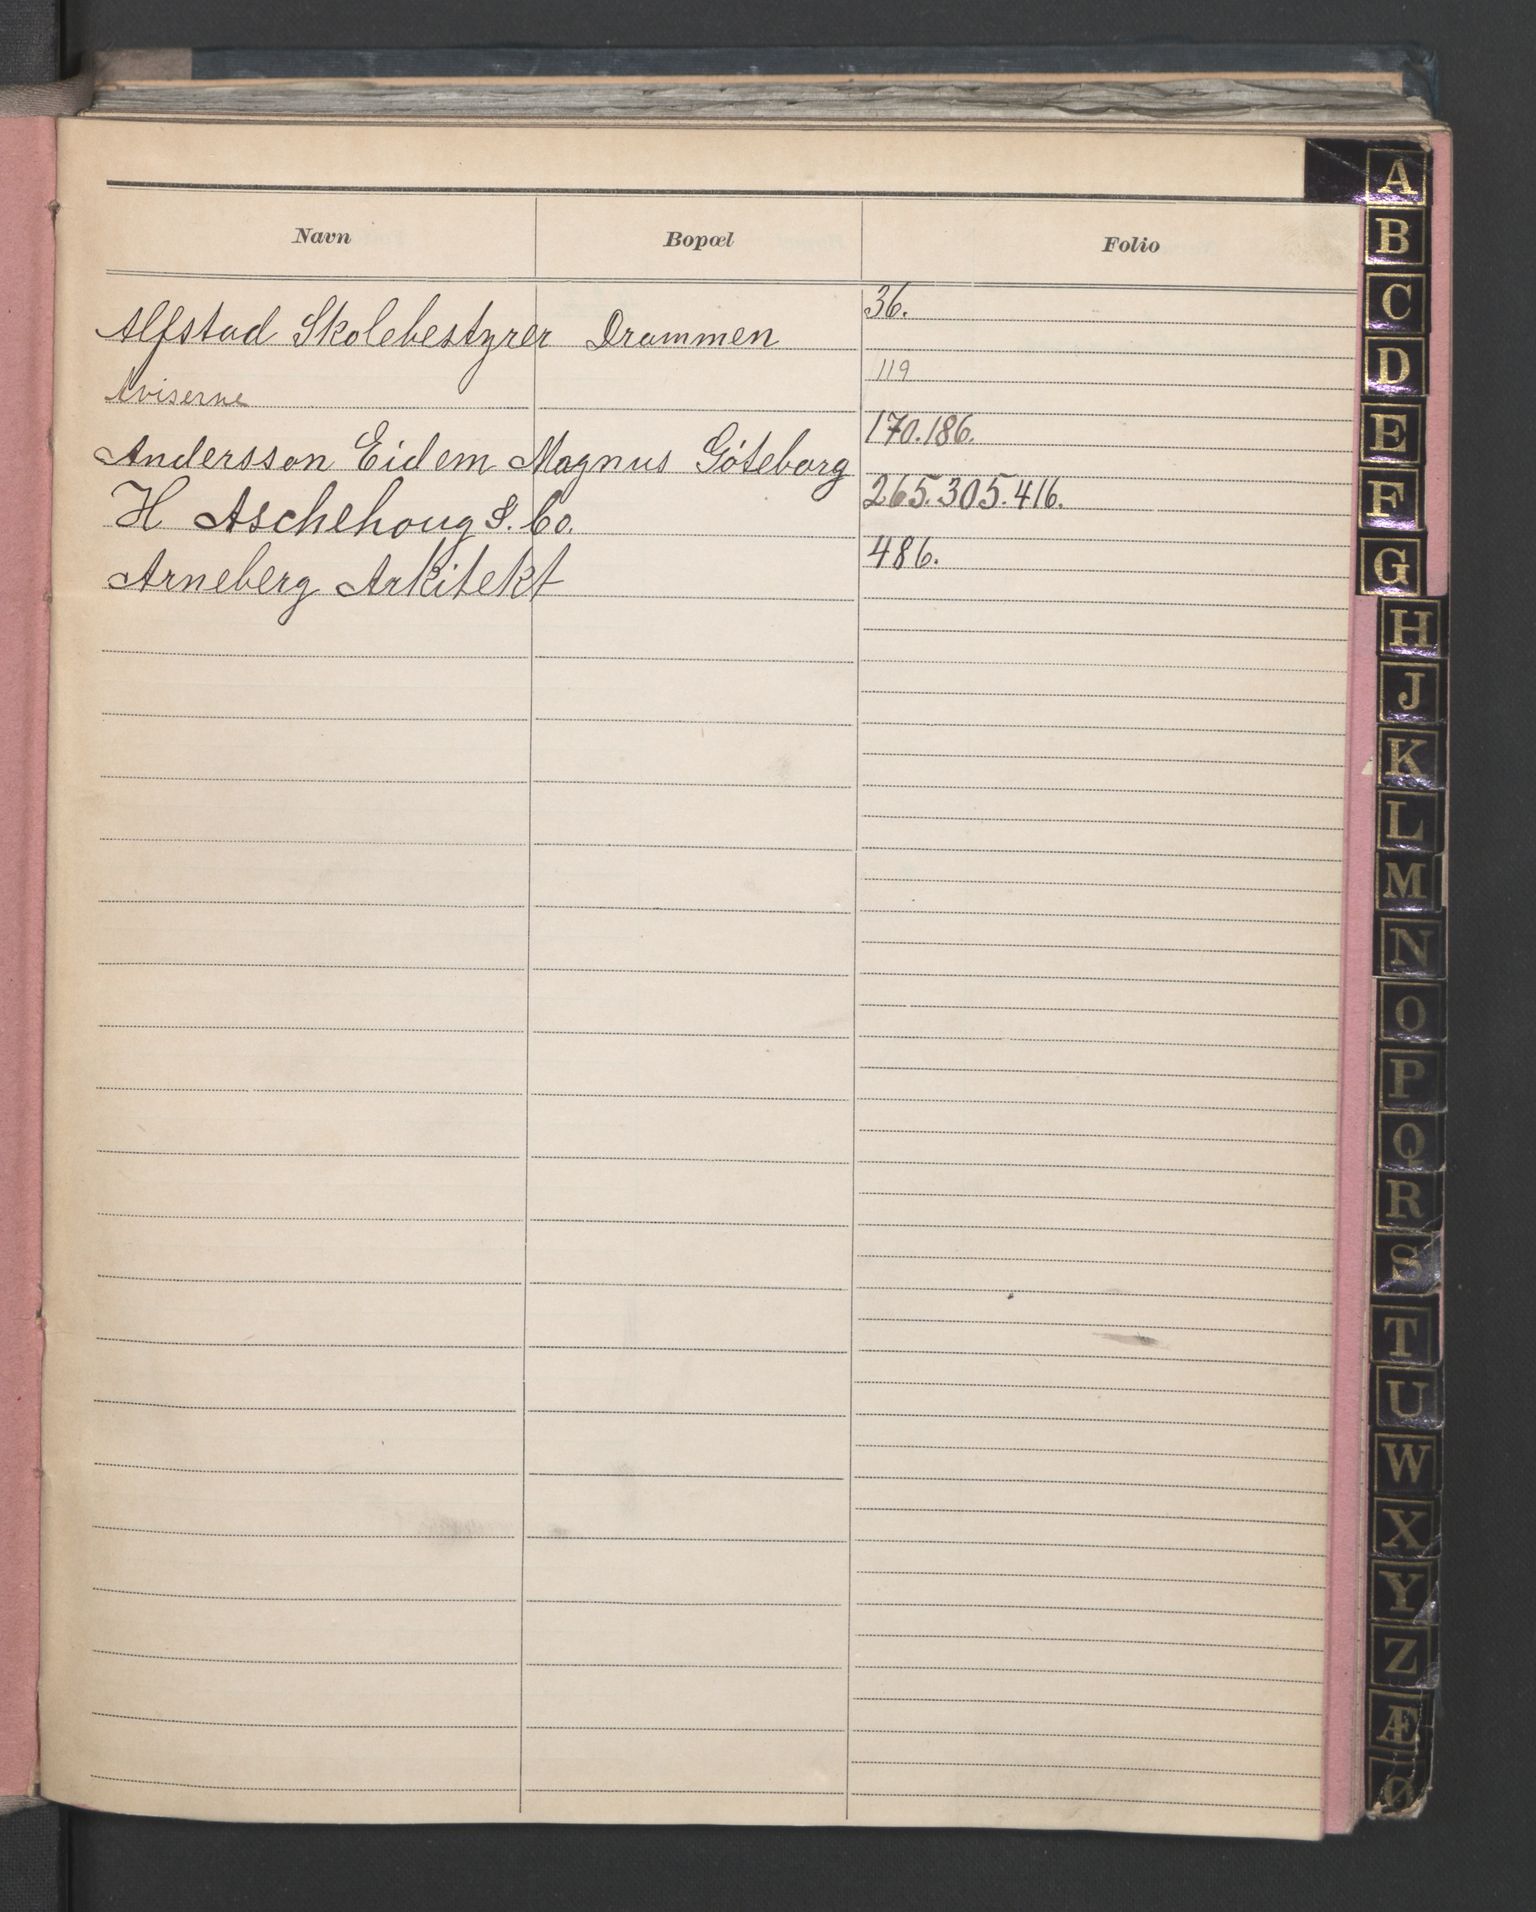 Navn Bopæl Folio
Alfstad Skolebestyrer Drammen 36.
Aviserne 119
Andersson Eidem Magnus Göteborg 170.186.
H Aschehoug &. Co. 265.305.416.
Arneberg Arkitekt 486.
A
B
C
D
E
F
G
H
J
K
L
M
N
O
P
Q
R
S
T
U
W
X
Y
Z
Æ
Ø